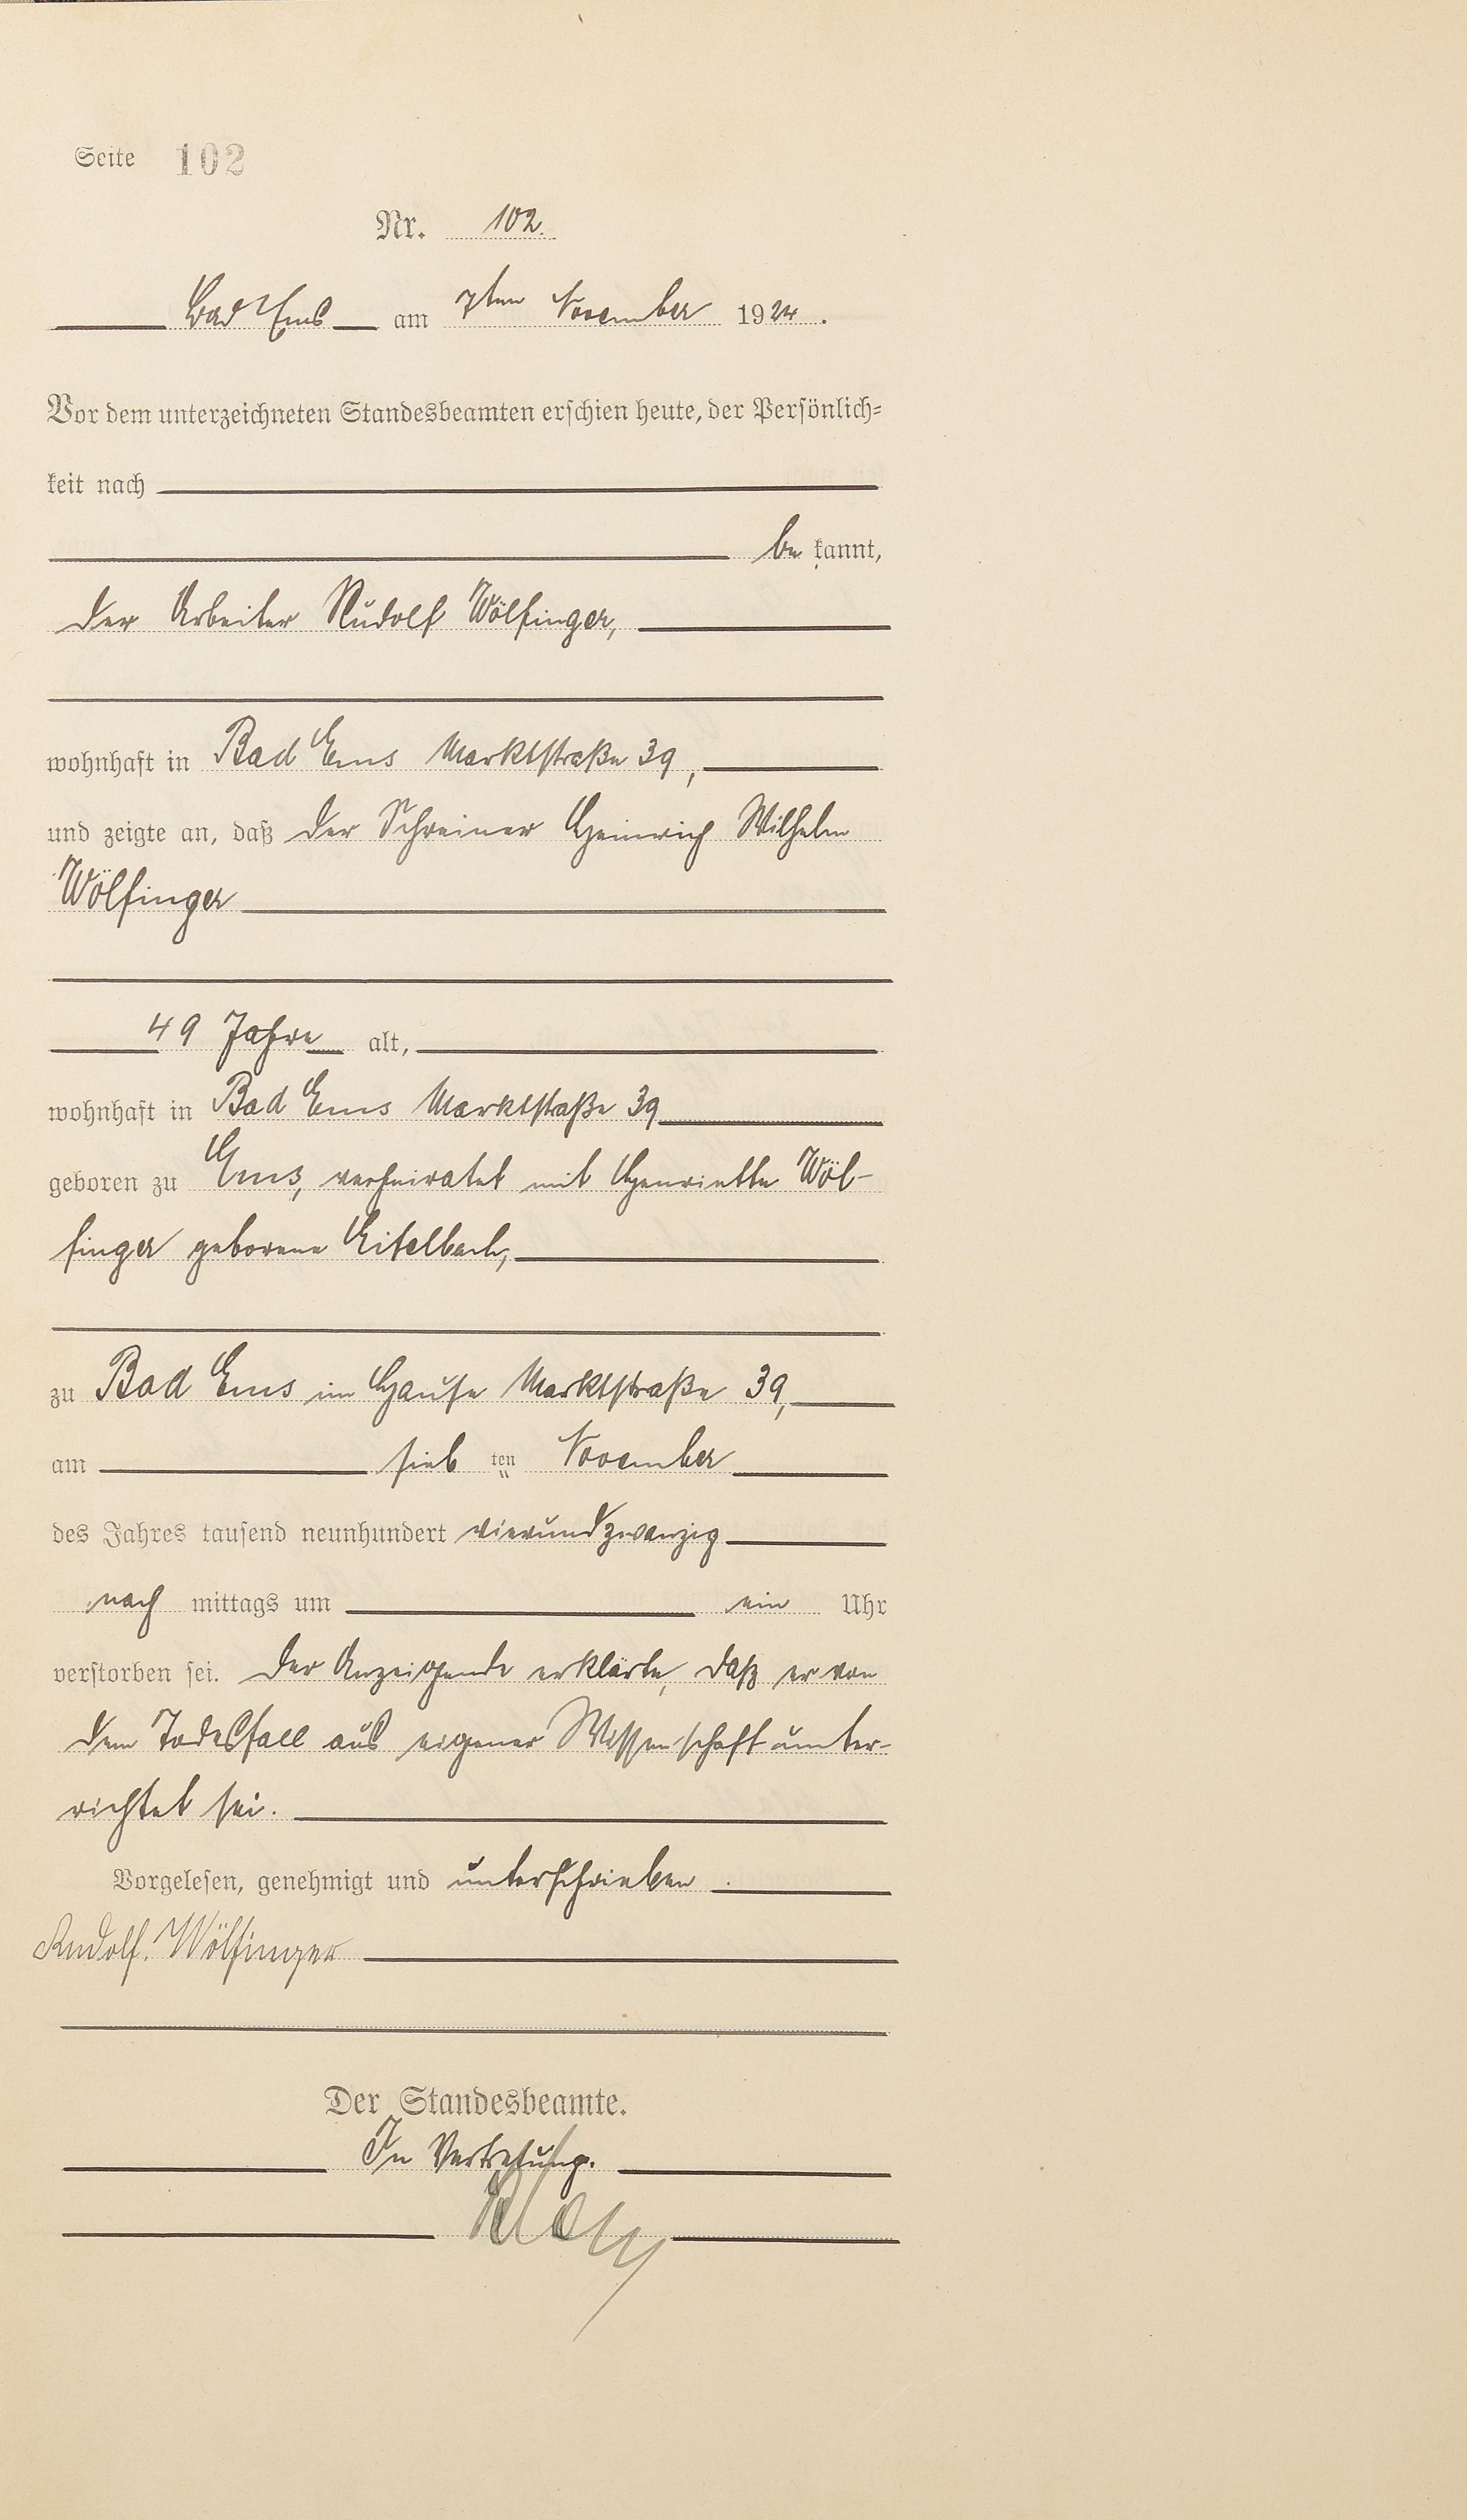 Seite 102
Nr. 102.
Bad Ems am 7ten November 1924.
Vor dem unterzeichneten Standesbeamten erschien heute, der Persönlich-
keit nach
be kannt,
der Arbeiter Rudolf Wölfinger,
wohnhaft in Bad Ems Marktstraße 39,
und zeigte an, daß der Schreiner Heinrich Wilhelm
Wölfinger
49 Jahre alt,
wohnhaft in Bad Ems Marktstraße 39
geboren zu Ems, verheiratet mit Henriette Wöl-
finger geborene Eitelbach,
zu Bad Ems im Hause Marktstraße 39,
am sieb ten November
des Jahres tausend neunhundert vierundzwanzig
nach mittags um ein Uhr
verstorben sei. Der Anzeigende erklärte, daß er von
dem Todesfall aus eigener Wissenschaft unter-
richtet sei.
Vorgelesen, genehmigt und unterschrieben.
Rudolf Wölfinger
Der Standesbeamte.
In Vertretung.